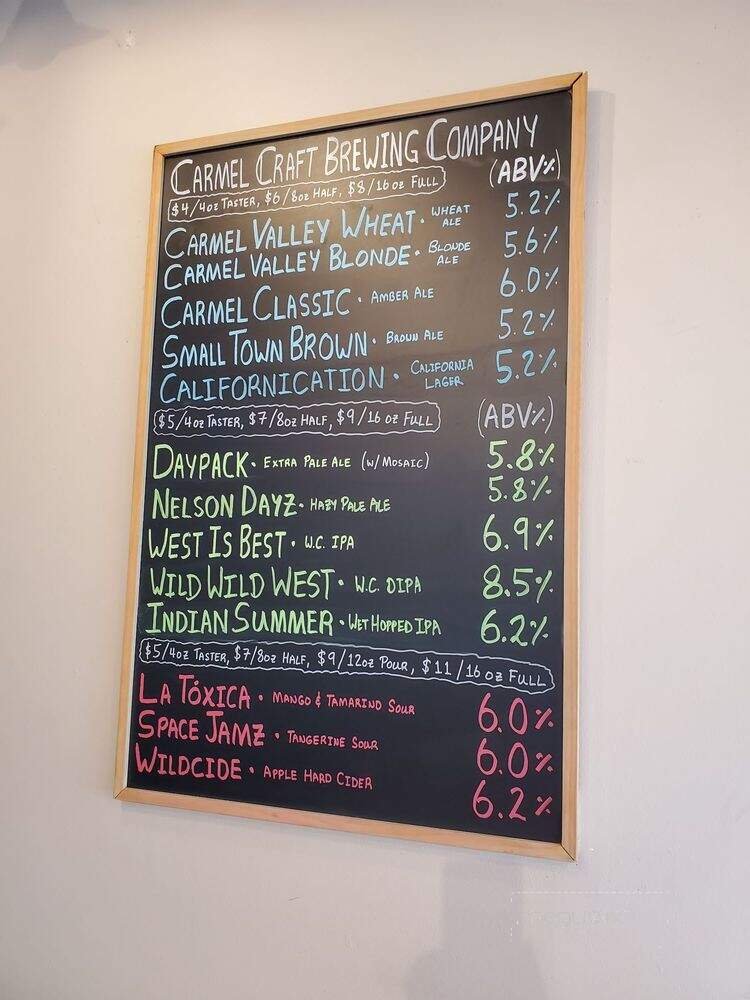 CARMEL CRAFT BREWING COMPANY
$4/4oz TASTER, $6/8oz HALF, $8/16oz FULL (ABV%)
CARMEL VALLEY WHEAT · WHEAT ALE 5.2%
CARMEL VALLEY BLONDE · BLONDE ALE 5.6%
CARMEL CLASSIC · AMBER ALE 6.0%
SMALL TOWN BROWN · BROWN ALE 5.2%
CALIFORNICATION · CALIFORNIA LAGER 5.2%
$5/4oz TASTER, $7/8oz HALF, $9/16oz FULL (ABV%)
DAYPACK · EXTRA PALE ALE (W/MOSAIC) 5.8%
NELSON DAYZ · HAZY PALE ALE 5.8%
WEST IS BEST · W.C. IPA 6.9%
WILD WILD WEST · W.C. DIPA 8.5%
INDIAN SUMMER · WET HOPPED IPA 6.2%
$5/4oz TASTER, $7/8oz HALF, $9/12oz POUR, $11/16oz FULL
LA TÓXICA · MANGO & TAMARIND SOUR 6.0%
SPACE JAMZ · TANGERINE SOUR 6.0%
WILDCIDE · APPLE HARD CIDER 6.2%